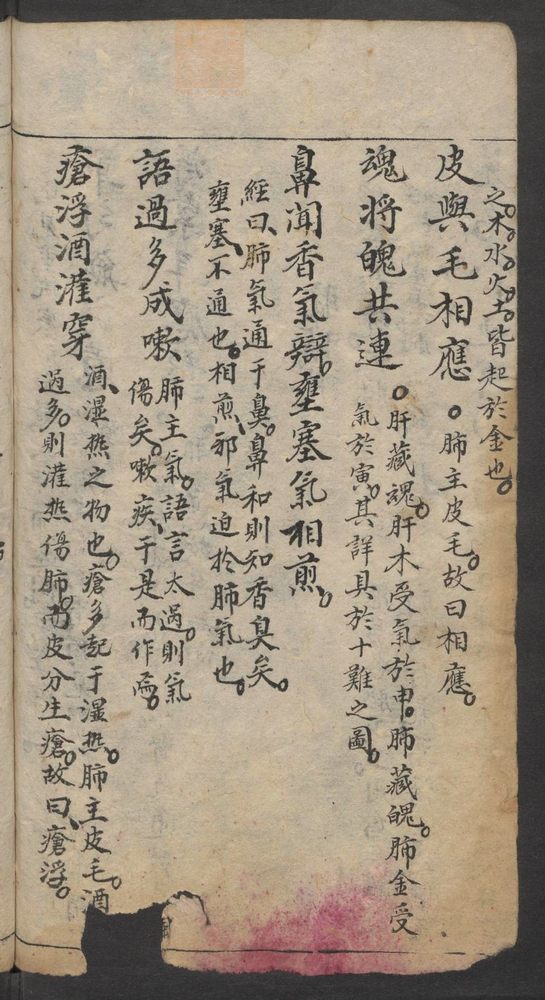 之。木。水。火。土。皆起於金也。
皮與毛相應。肺主皮毛。故曰相應。
魂將魄共連。肝藏魂。肝木受氣於申。肺藏魄。肺金受
氣於寅。其詳具於十難之圖。
鼻聞香氣辯。壅塞氣相煎。
經曰、肺氣通于鼻。鼻和則知香臭矣。
壅塞、不通也。相煎、邪氣迫於肺氣也。
語過多成嗽
肺主氣。語言太過。則氣
傷矣。嗽疾、于是而作焉。
瘡浮酒灌穿
酒、湿热之物也。瘡多起于湿热。肺主皮毛。酒
過多。則灌热傷肺。而皮分生瘡。故曰、瘡浮。